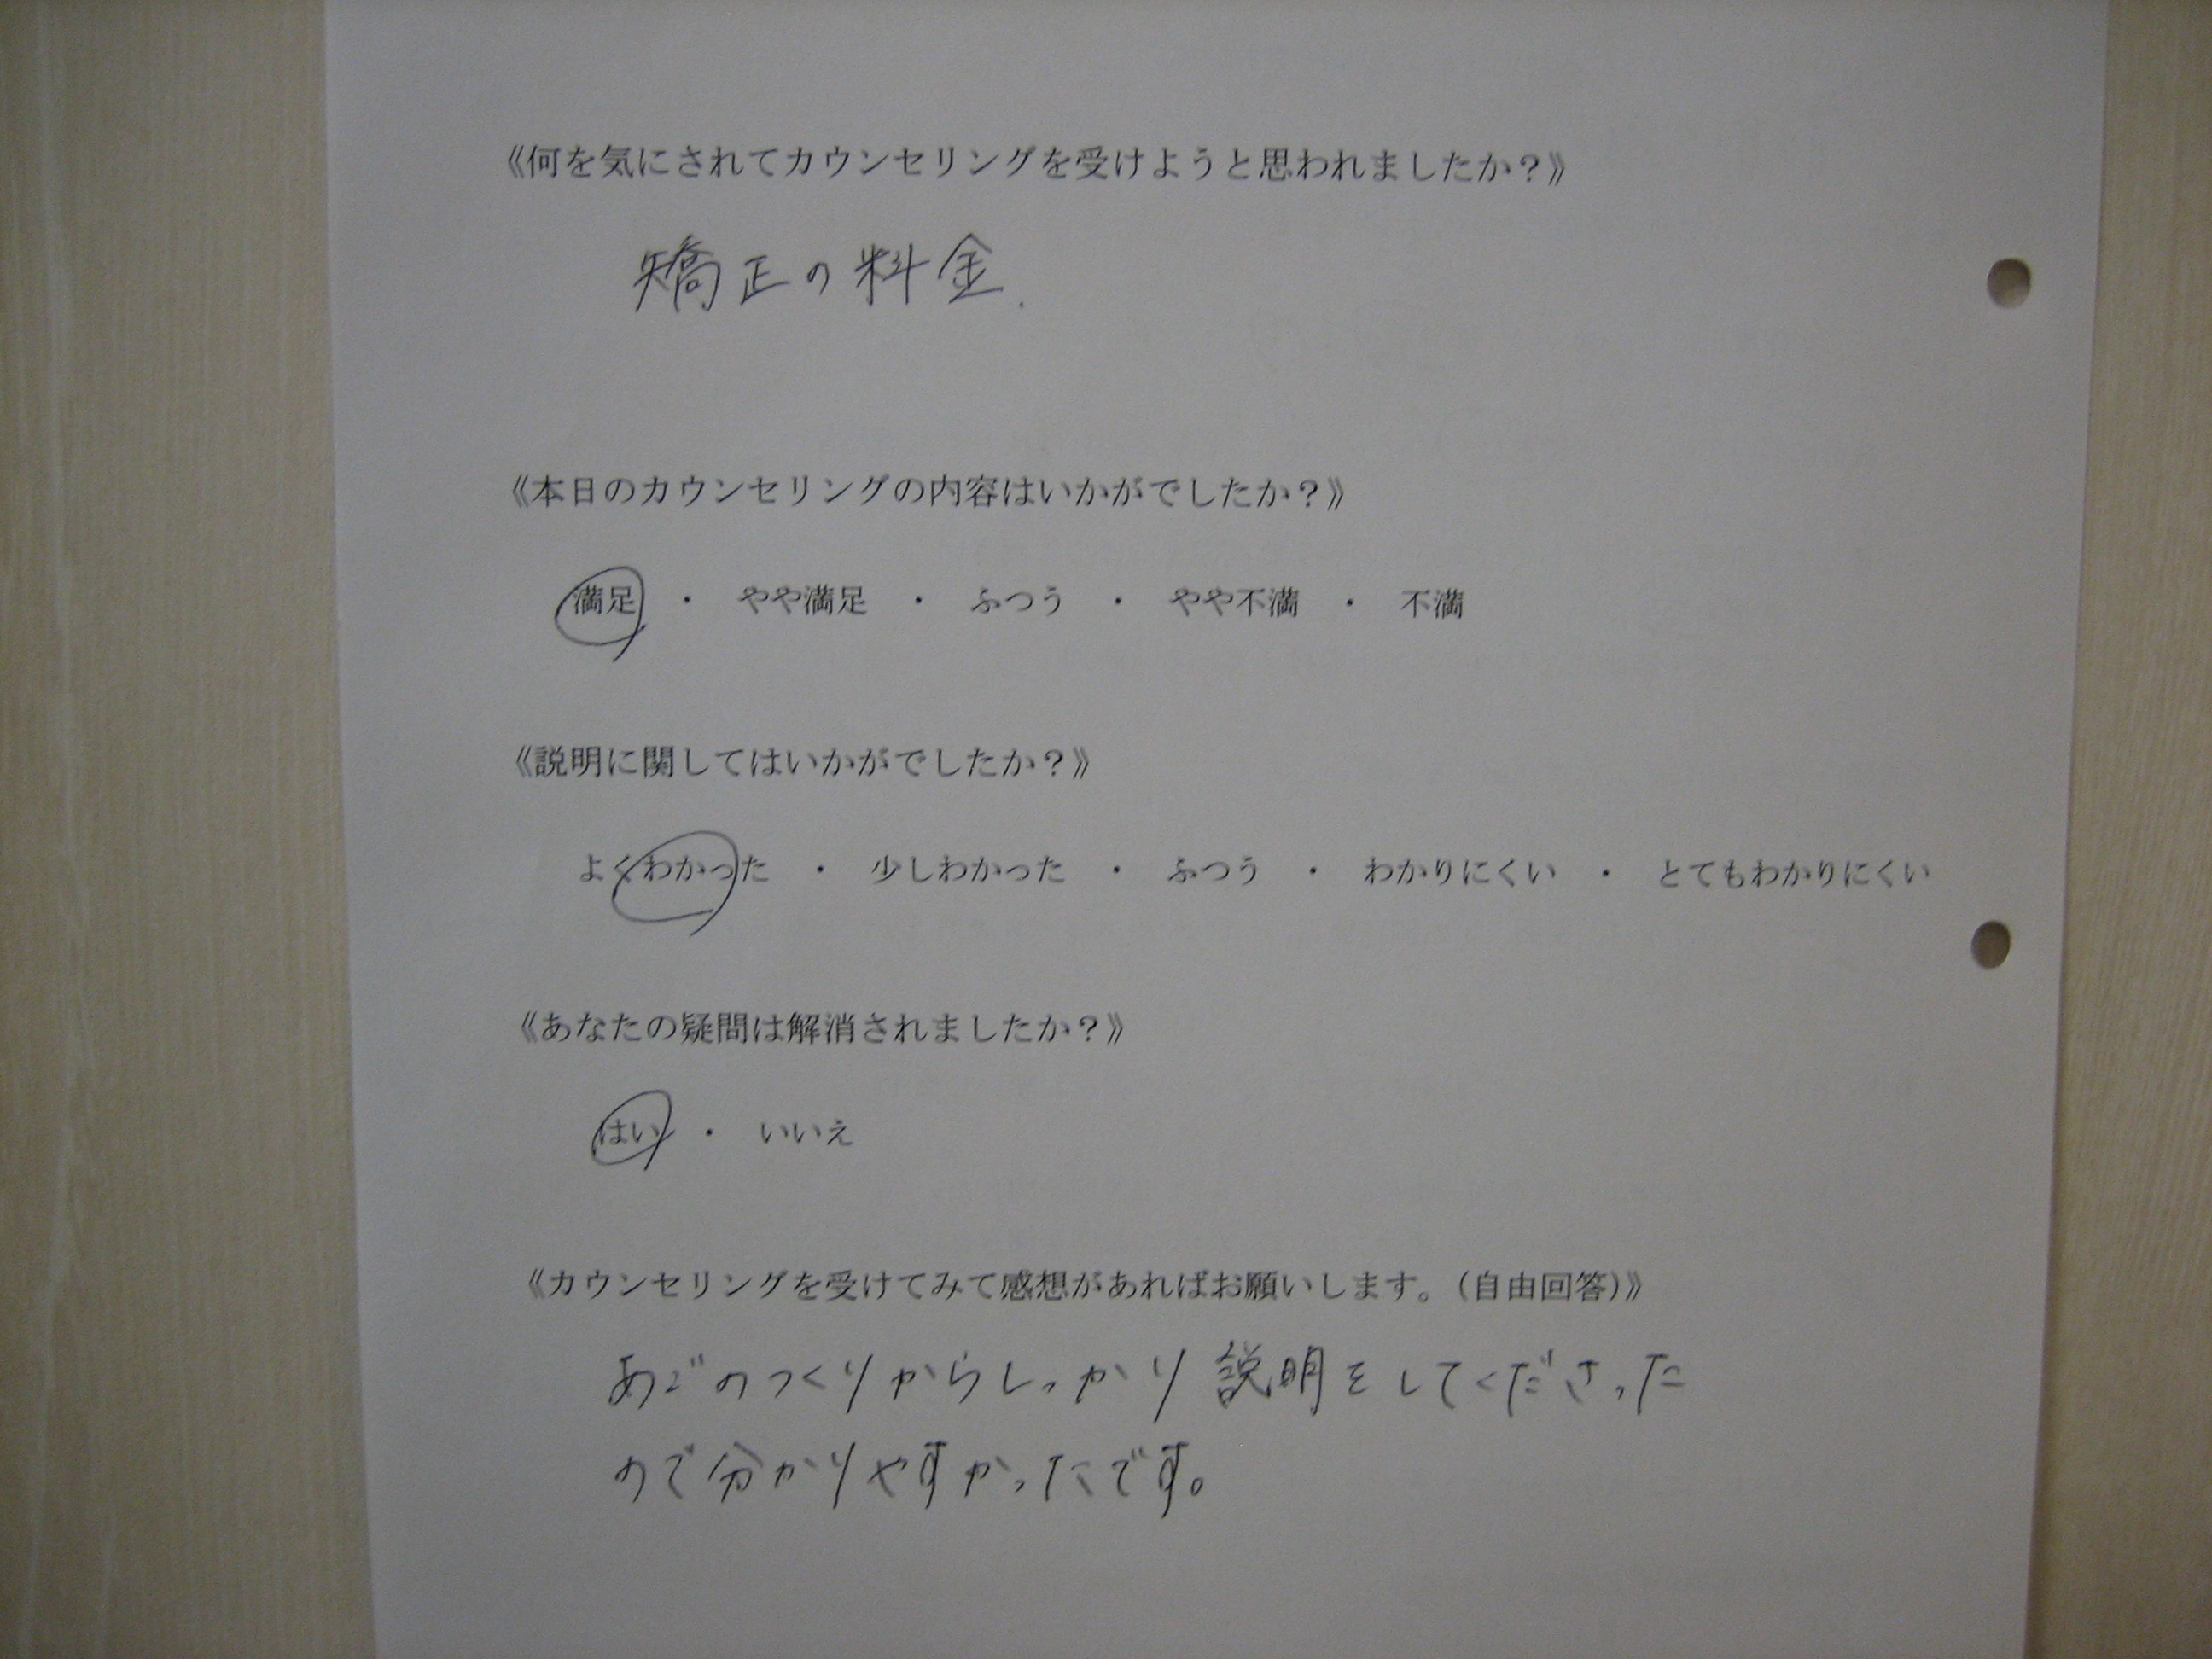 《何を気にされてカウンセリングを受けようと思われましたか？》
矯正の料金.
《本日のカウンセリングの内容はいかがでしたか？》
満足　・　やや満足　・　ふつう　・　やや不満　・　不満
《説明に関してはいかがでしたか？》
よくわかった　・　少しわかった　・　ふつう　・　わかりにくい　・　とてもわかりにくい
《あなたの疑問は解消されましたか？》
はい　・　いいえ
《カウンセリングを受けてみて感想があればお願いします。（自由回答）》
あごのつくりからしっかり説明をしてくださった
ので分かりやすかったです。